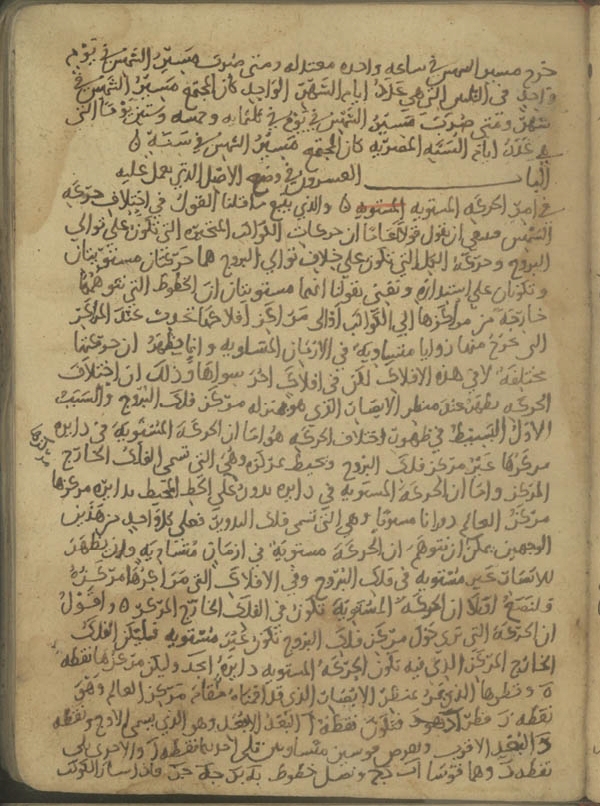 خرج مسير الشمس في ساعه واحده معتدله ومتى ضربت مسير الشمس في يوم
واحد في الثلثين التي هي عدد ايام الشهر الواحد كان المجتمع مسير الشمس في
شهر ومتى ضربت مسير الشمس في يوم في ثلثمايه وخمسه وستين يوما التي
هي عدد ايام السنه المصريه كان المجتمع مسير الشمس في سنه
الباب العشرون في وضع الاصل الذي يعمل عليه
في امر الحركه المستويه المستويه والذي يتبع ما قلنا القول في اختلاف حركه
الشمس فينبغي ان نقول قولا عاما ان حركات الكواكب المتحيره التي تكون على توالي
البروج وحركه الكل التي تكون على خلاف توالي البروج هما حركتان مستويتان
وتكونان على استداره ونعني بقولنا انهما مستويتان ان الخطوط التي نتوهمها
خارجه من مراكزها الى الكواكب او الى مراكز افلاكها تحدث عند المراكز
التي تخرج منها زوايا متساويه في الازمان المتساويه وانما يظهر ان حركتها
مختلفه لا في هذه الافلاك لكن في افلاك اخر سواها وذلك ان اختلاف
الحركه يظهر عند منظر الابصار الذي هو بمنزله مركز فلك البروج والسبب
الاول البسيط في ظهور اختلاف الحركه هو اما ان الحركه المستويه في دايره
مركزها غير مركز فلك البروج وتحيط بمركزه وهي التي تسمى الفلك الخارج
المركز واما ان الحركه المستويه في دايره يدور على الخط المحيط بدايره مركزها
مركز العالم دورانا مستويا وهي التي تسمى فلك التدوير فعلى كل واحد من هذين
الوجهين يمكن ان نتوهم ان الحركه مستويه في ازمان متساويه ولم يظهر
للانسان غير مستويه في فلك البروج وفي الافلاك التي مراكزها مركزه
فلنضع اولا ان الحركه المستويه تكون في الفلك الخارج المركز واقول
ان الحركه التي ترى حول مركز فلك البروج تكون غير مستويه فليكن الفلك
الخارج المركز الذي فيه تكون الحركه المستويه دايره ابجد وليكن مركزها نقطه
ه وقطرها الذي يمر بمنظر الابصار الذي قد اقمناه مقام مركز العالم وهو
نقطه ز قطر اهزد فتكون نقطه ا البعد الابعد وهو الذي يسمى الاوج ونقطه
د البعد الاقرب ونفرض قوسين متساويتين تلي احديهما نقطه ا والاخرى تلي
نقطه د وهما قوسا اب جد ونصل خطوط به بز جه جز فاذا سار الكوكب